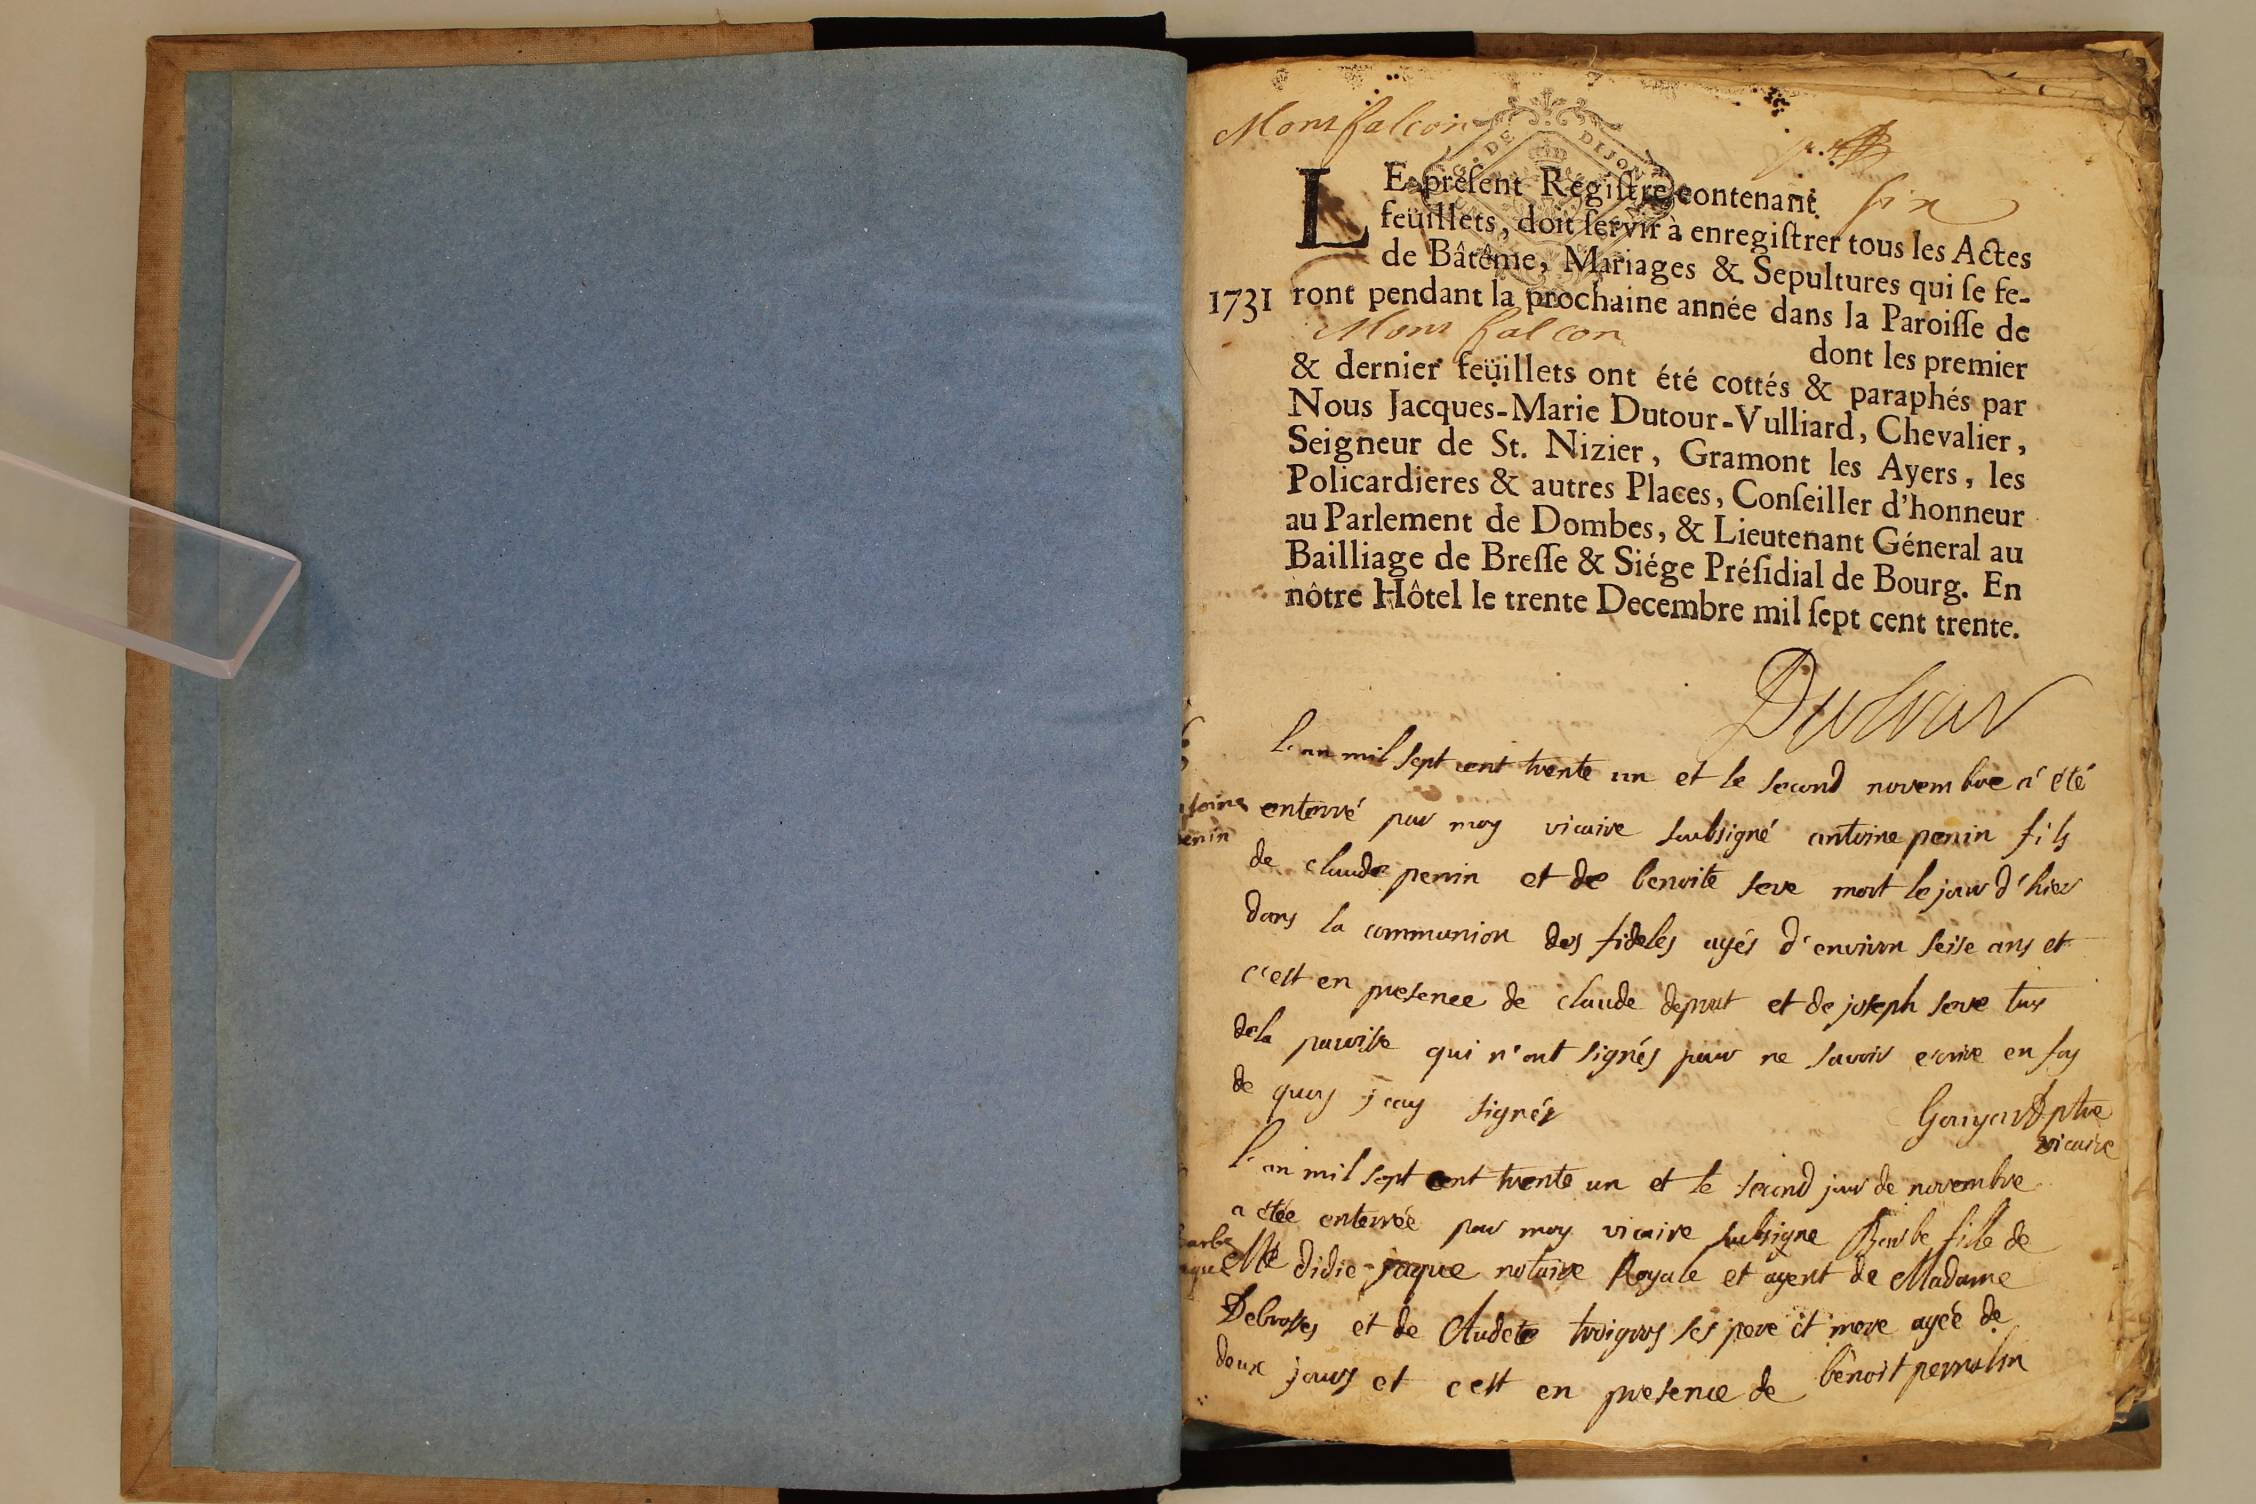 Montfalcon
DE DIJON
LE present Registre contenant six
feüillets, doit servir à enregistrer tous les Actes
de Bâtême, Mariages & Sepultures qui se fe-
1731 ront pendant la prochaine année dans la Paroisse de
Montfalcon dont les premier
& dernier feüillets ont été cottés & paraphés par
Nous Jacques-Marie Dutour-Vulliard, Chevalier,
Seigneur de St. Nizier, Gramont les Ayers, les
Policardieres & autres Places, Conseiller d'honneur
au Parlement de Dombes, & Lieutenant Géneral au
Bailliage de Bresse & Siége Présidial de Bourg. En
nôtre Hôtel le trente Decembre mil sept cent trente.
Dutour
l'an mil sept cent trente un et le second novembre a été
enterré par moy vicaire soubsigné antoine penin fils
penin
de claude penin et de benoite seve mort le jour d'hier
dans la communion des fideles agés d'environ seise ans et
c'est en presence de claude et de joseph seve tous
dela paroisse qui n'ont signés pour ne savoir ecrire en foy
de quoy j'ay signés
ptre
vicaire
l'an mil sept cent trente un et le second jour de novembre
a étée enterrée par moy vicaire subsigne Barbe fille de
Barbe
Me didie jaque notaire Royale et agent de Madame
Debrosses et de Audete ses pere et mere agée de
deux jours et c'est en presence de benoit